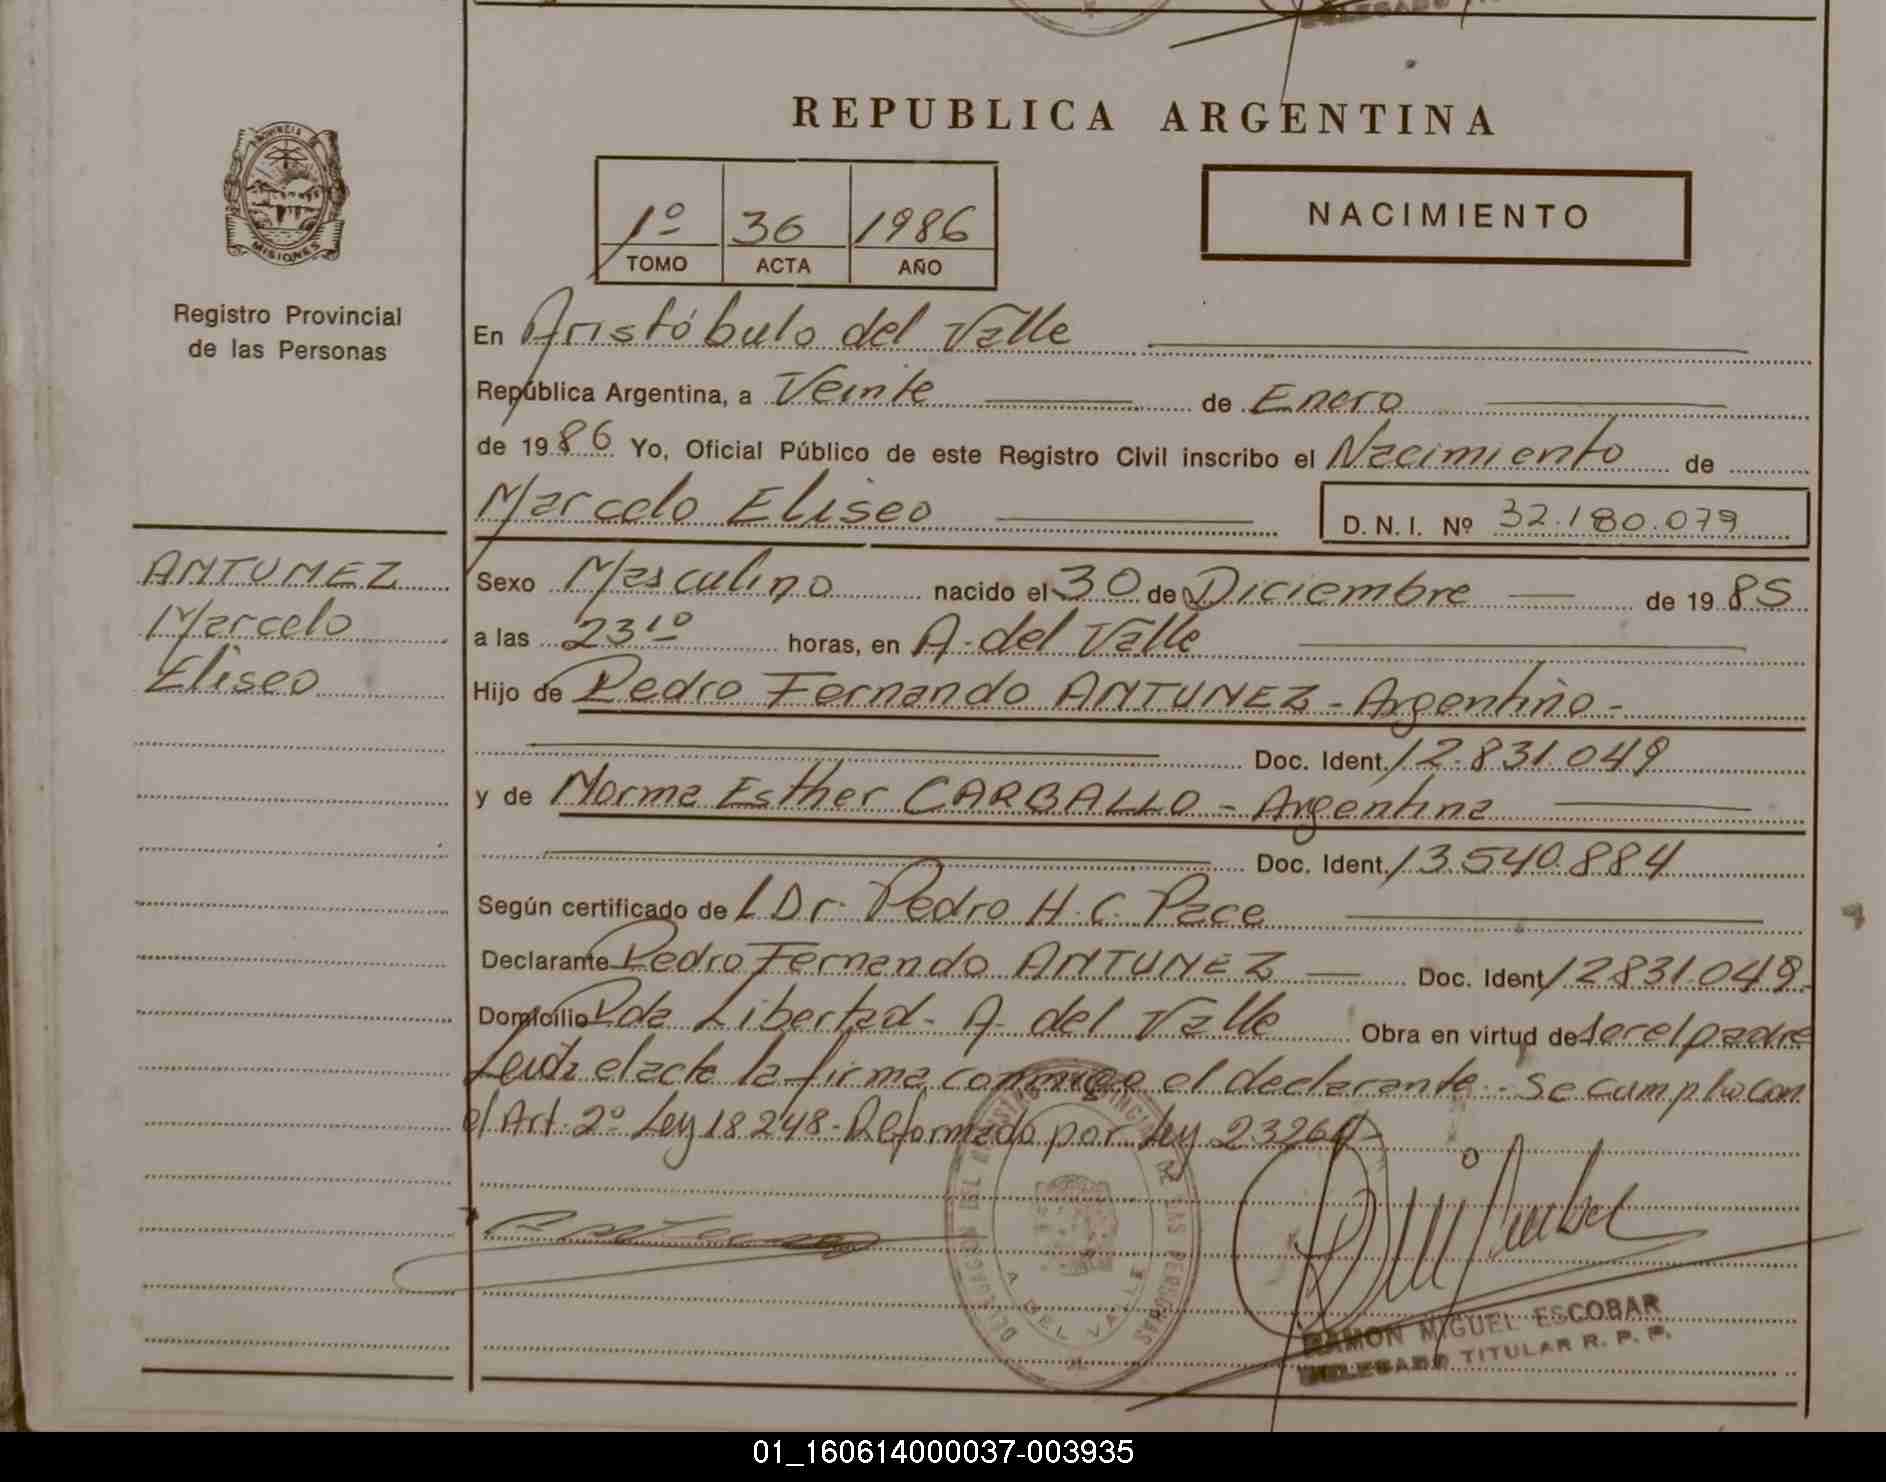 REPUBLICA ARGENTINA
PROVINCIA
MISIONES
Registro Provincial
de las Personas
1º 36 1986
TOMO ACTA AÑO
NACIMIENTO
En Aristóbulo del Valle
República Argentina, a Veinte de Enero
de 1986 Yo, Oficial Público de este Registro Civil inscribo el Nacimiento de
Marcelo Eliseo D.N.I. Nº 32.180.079
ANTUNEZ
Marcelo
Eliseo
Sexo Masculino nacido el 30 de Diciembre de 1985
a las 23 10 horas, en A. del Valle
Hijo de Pedro Fernando ANTUNEZ - Argentino -
Doc. Ident. 12.831.049
y de Norma Esther CARBALLO - Argentina
Doc. Ident. 13.540.884
Según certificado del Dr. Pedro H. C. Pace
Declarante Pedro Fernando ANTUNEZ Doc. Ident 12831.049
Domicilio Pda Libertad - A. del Valle Obra en virtud de ser el padre
Leída el acta la firma conmigo el declarante - Se cumplio con
el Art. 2º Ley 18248 - Reformado por Ley 23264 -
DELEGACION DEL REGISTRO PROVINCIAL DE LAS PERSONAS
A. DEL VALLE
RAMON MIGUEL ESCOBAR
DELEGADO TITULAR R. P. P.
01_160614000037-003935